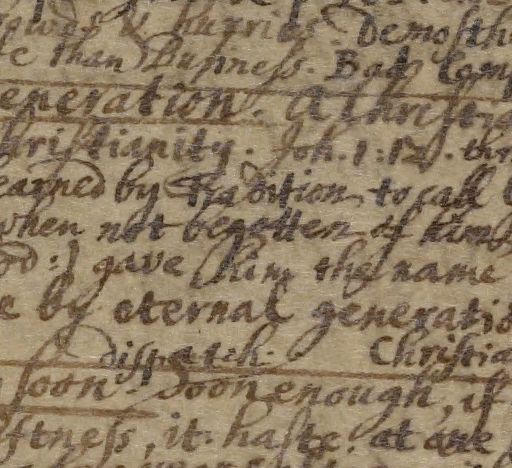 & hurries. Demosth
than Busness. Bad Comp
eneration. A Christi
hristianity. Joh. 1:12.
earned by Tradition to call
when not begotten of him
od:) gave him the name
e by eternal generatio
dispatch. Christia
soon. Soon enough, if
ftness, it. haste. at one